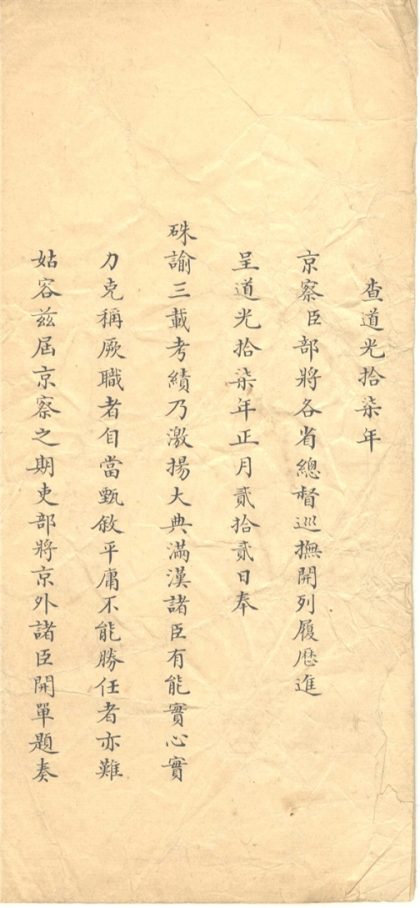 查道光拾柒年
京察臣部將各省總督巡撫開列履歷進
呈道光拾柒年正月貳拾貳日奉
硃諭三載考績乃激揚大典滿漢諸臣有能實心實
力克稱厥職者自當甄敘平庸不能勝任者亦難
姑容茲屆京察之期吏部將京外諸臣開單題奏